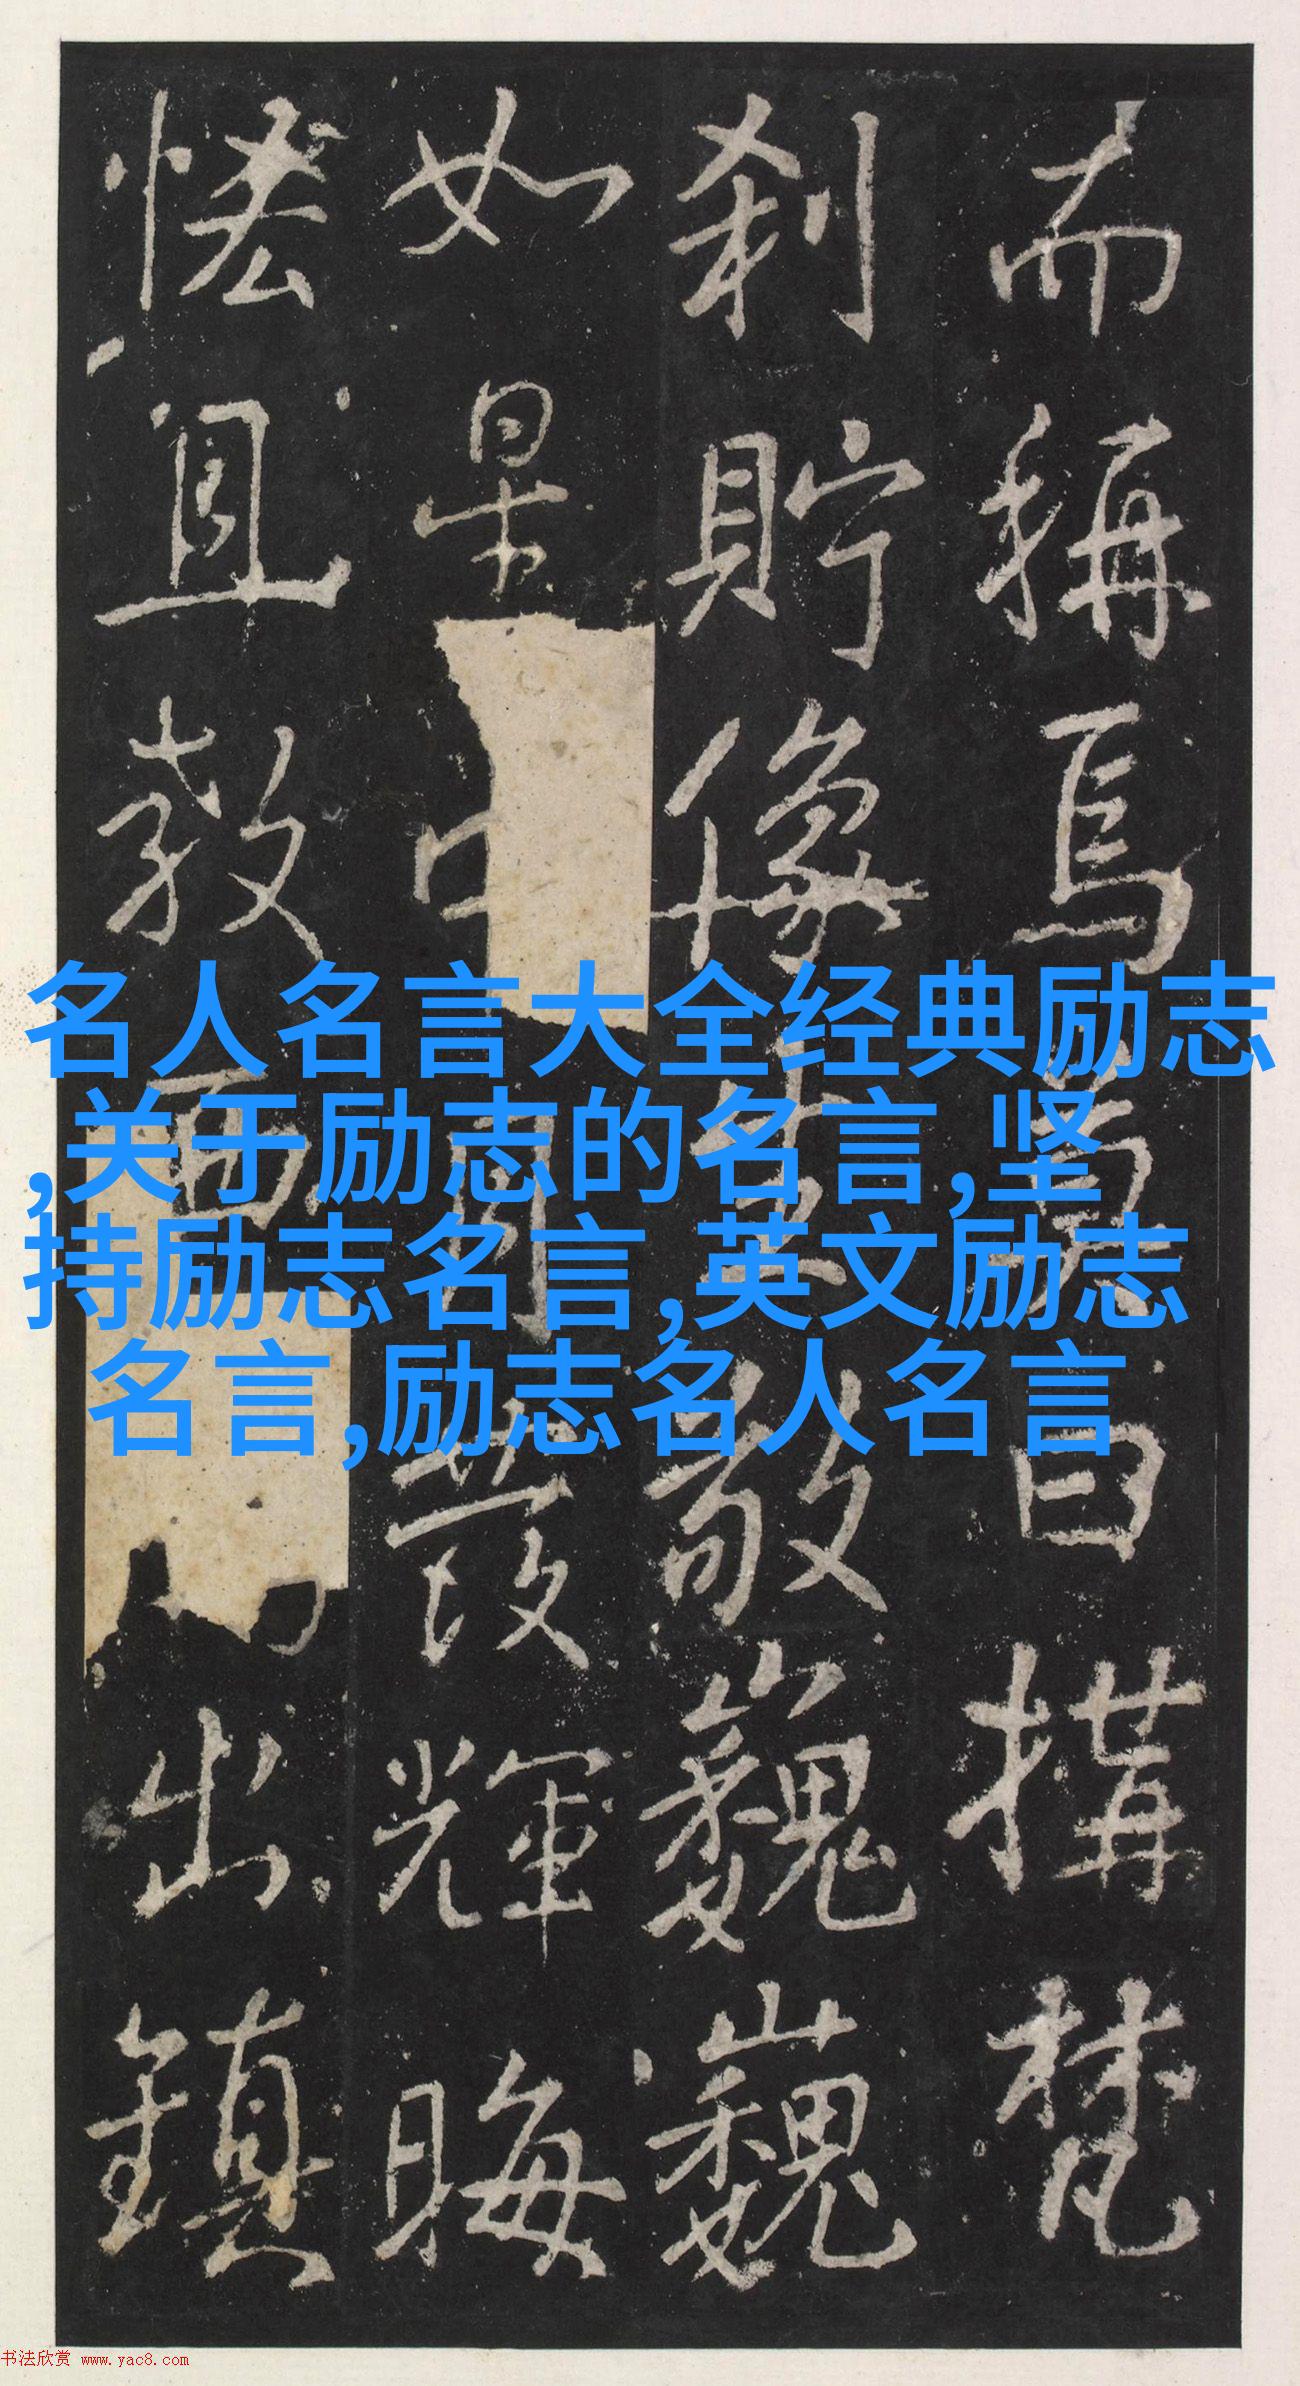 而稱焉爲曰搆梵
刹貯像生敬巍巍
如星中月發輝晦
恡且教
出鎮
名人名言大全经典励志
,关于励志的名言,坚
持励志名言,英文励志
名言,励志名人名言
书法欣赏 www.yac8.com